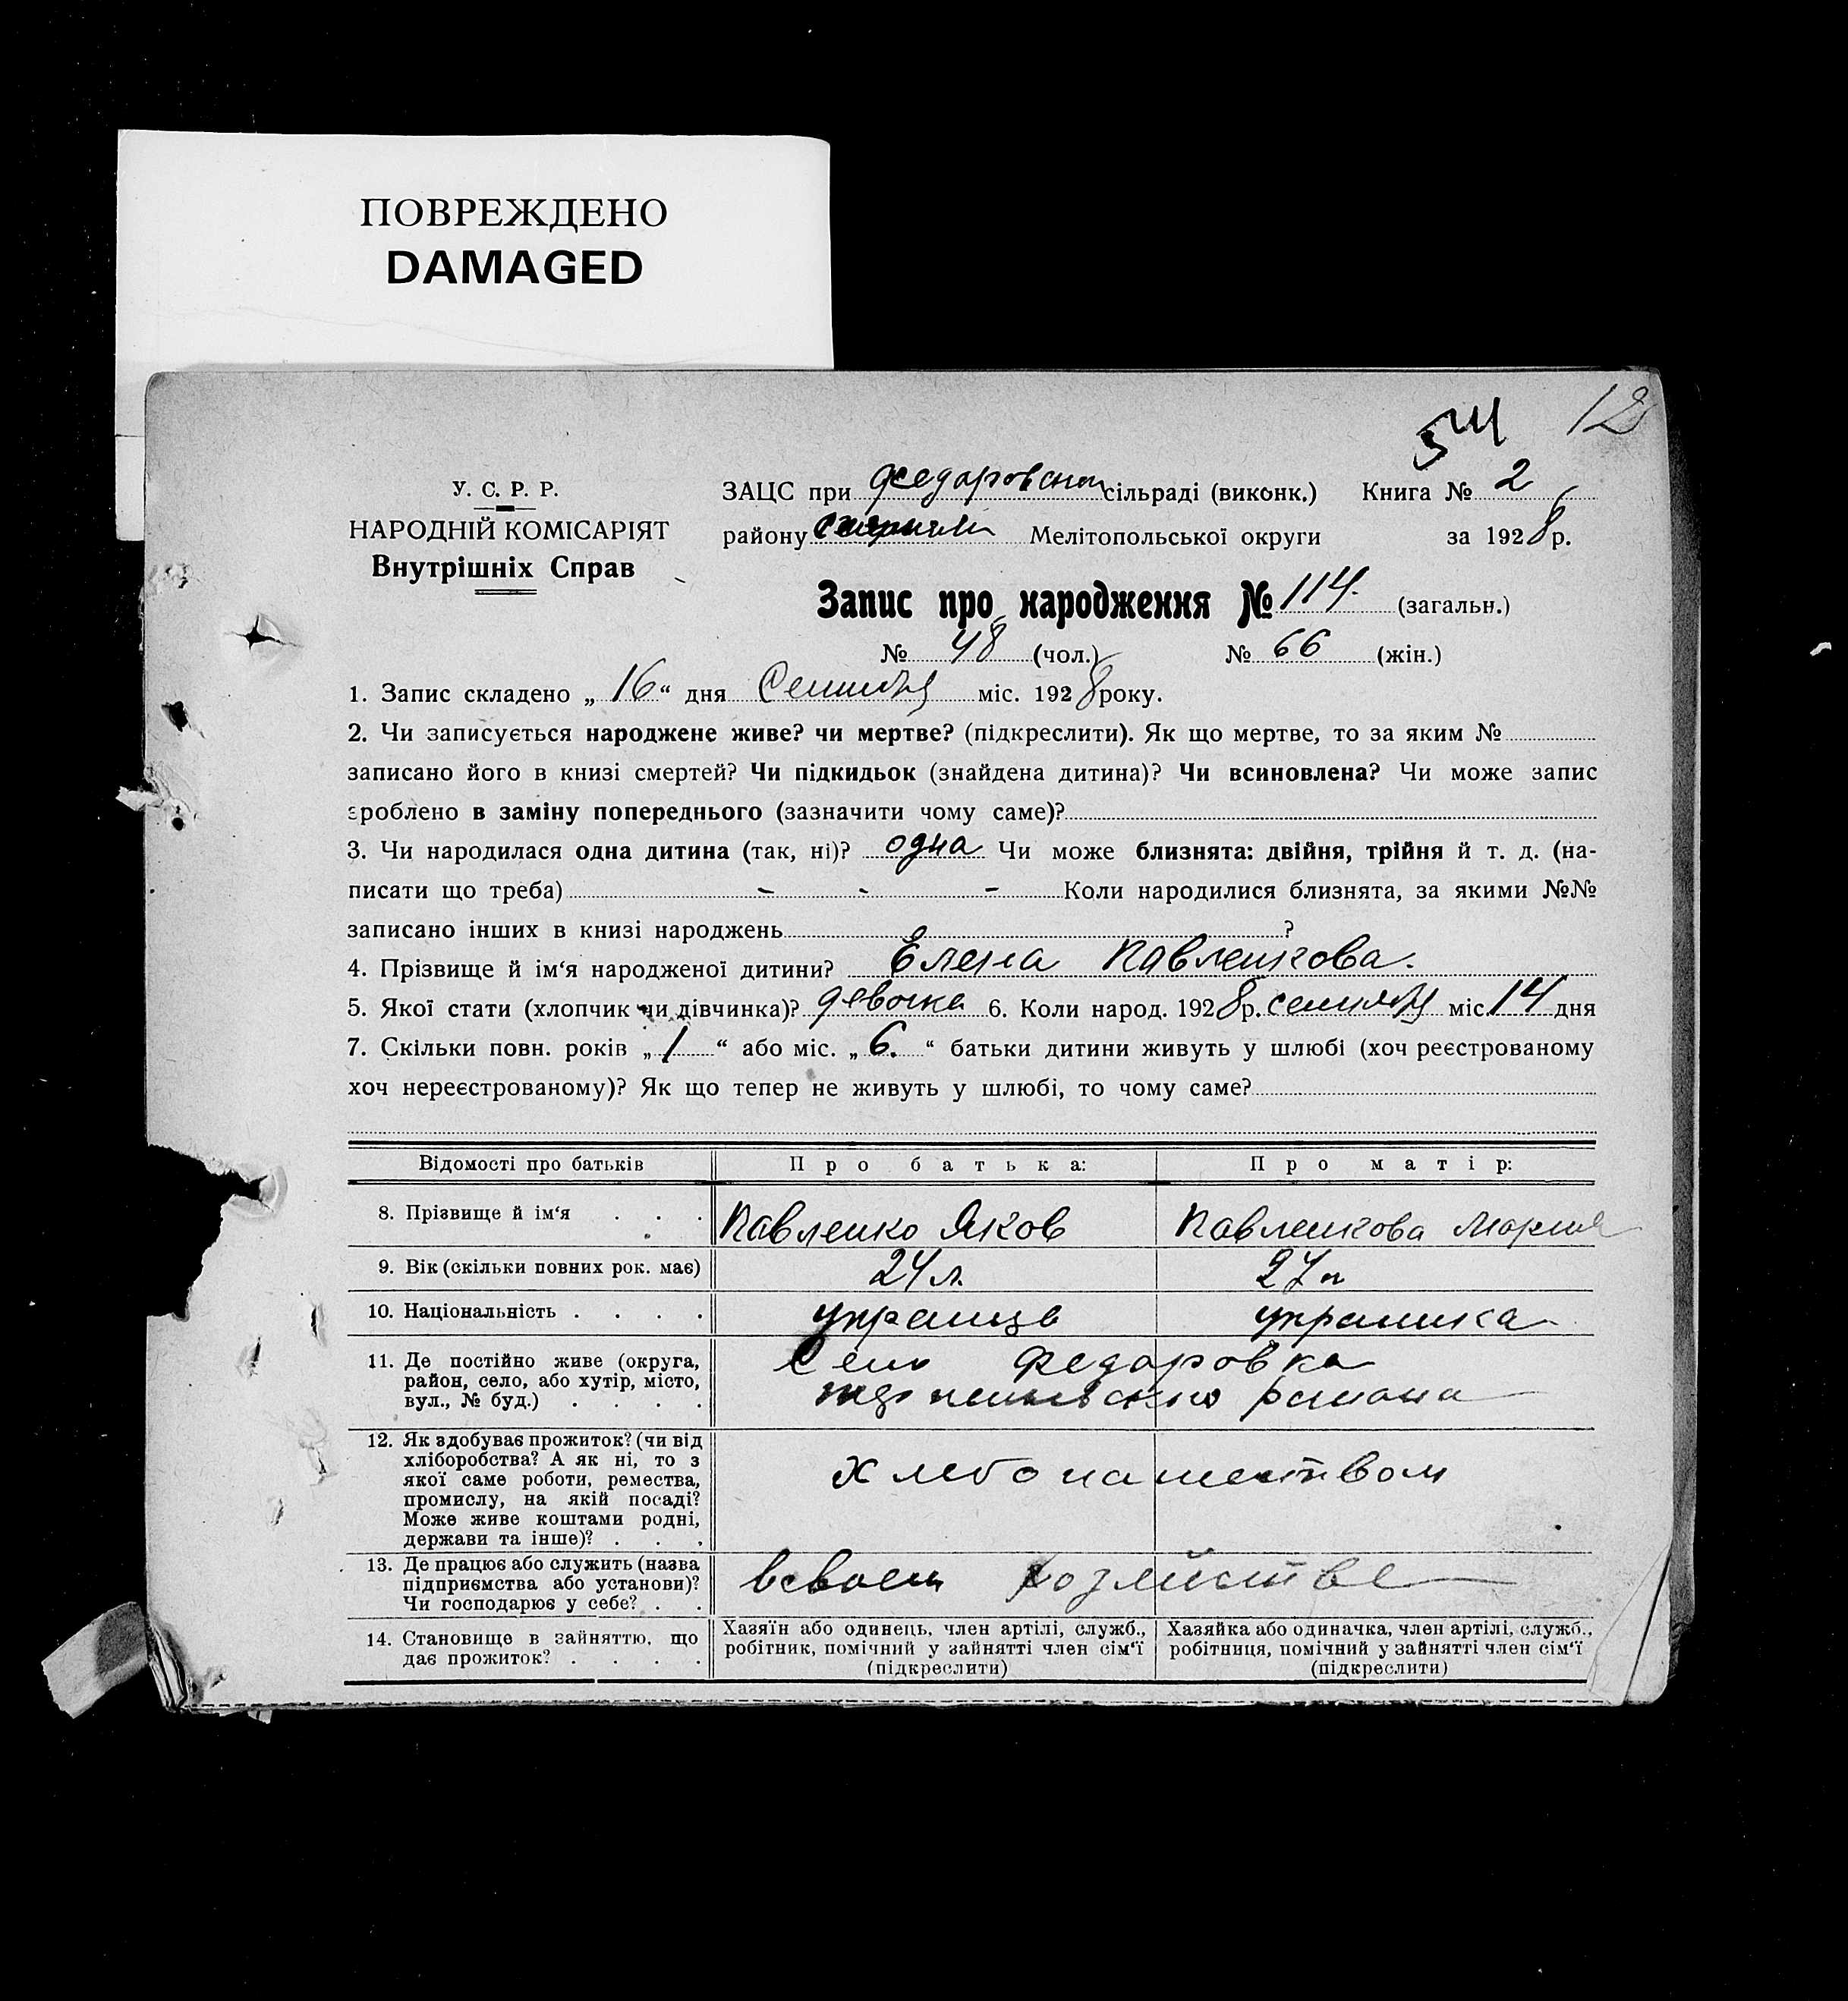 ПОВРЕЖДЕНО
DAMAGED
12
544
У. С. Р. Р.
НАРОДНІЙ КОМІСАРІЯТ
Внутрішніх Справ
ЗАЦС при Федаровском сільраді (виконк.) Книга № 2
району Мелітопольської округи за 1928 р.
Запис про народження № 114. (загальн.)
№ 48 (чол.) № 66 (жін.)
1. Запис складено „16“ дня Сентября міс. 1928 року.
2. Чи записується народжене живе? чи мертве? (підкреслити). Як що мертве, то за яким №
записано його в книзі смертей? Чи підкидьок (знайдена дитина)? Чи всиновлена? Чи може запис
зроблено в заміну попереднього (зазначити чому саме)?
3. Чи народилася одна дитина (так, ні)? одна Чи може близнята: двійня, трійня й т. д. (на-
писати що треба) - - - Коли народилися близнята, за якими №№
записано інших в книзі народжень ?
4. Прізвище й ім‘я народженої дитини? Елена Павленкова.
5. Якої стати (хлопчик чи дівчинка)? девочка 6. Коли народ. 1928 р. сентября міс. 14 дня
7. Скільки повн. років „1“ або міс. „6.“ батьки дитини живуть у шлюбі (хоч реєстрованому
хоч нереєстрованому)? Як що тепер не живуть у шлюбі, то чому саме?
Відомості про батьків Про батька: Про матір:
8. Прізвище й ім‘я . . . Павленко Яков Павленкова Мария
9. Вік (скільки повних рок. має) 24 л. 27 л
10. Національність . . . . украинцв украинка
11. Де постійно живе (округа,
район, село, або хутір, місто,
вул., № буд.) . . . .
Село Федаровка
района
12. Як здобуває прожиток? (чи від
хліборобства? А як ні, то з
якої саме роботи, ремества,
промислу, на якій посаді?
Може живе коштами родні,
держави та інше)? . . .
Хлебопашеством
13. Де працює або служить (назва
підприємства або установи)?
Чи господарює у себе? . .
всвоем хозяйстве
14. Становище в зайняттю, що
дає прожиток? . . . .
Хазяїн або одинець, член артілі, служб.,
робітник, помічний у зайнятті член сім‘ї
(підкреслити)
Хазяйка або одиначка, член артілі, служб.,
робітниця, помічний у зайнятті член сім‘ї
(підкреслити)